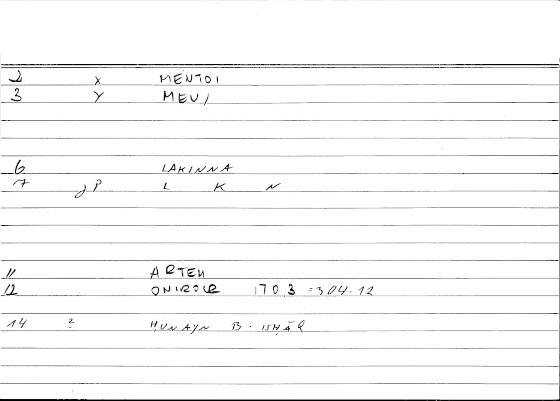 2 x MENTOI
3 y MEV/
6 LAKINNA
7 JP L K N
11 ARTEM
12 ONIROCR 170 3 = 304.12
14 2 ḤUNAYN B. ISḤĀQ